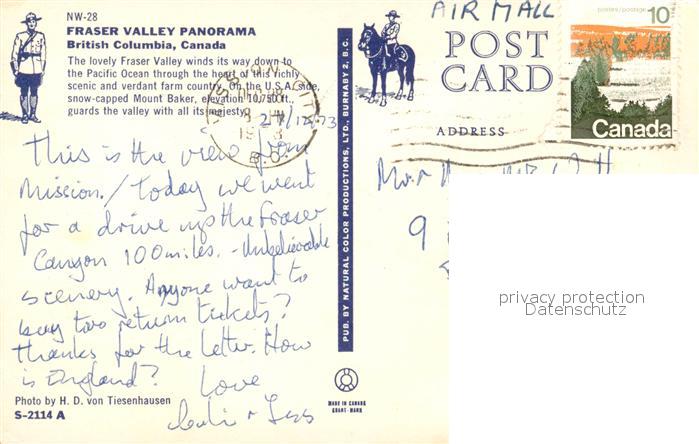 NW-28
FRASER VALLEY PANORAMA
British Columbia, Canada
The lovely Fraser Valley winds its way down to
the Pacific Ocean through the heart of this richly
scenic and verdant farm country. On the U.S.A. side,
snow-capped Mount Baker, elevation 10,750 ft.,
guards the valley with all its majesty.
This is the view from
Mission. / Today we went
for a drive up the Fraser
Canyon 100 miles. - Unbelievable
scenery. Anyone want to
buy two return tickets?
Thanks for the letter. How
is England?
Love
Photo by H. D. von Tiesenhausen
S-2114 A
PUB. BY NATURAL COLOR PRODUCTIONS, LTD., BURNABY 2, B.C.
MADE IN CANADA
AIR MAIL
POST
CARD
ADDRESS
postes/postage
10
Canada
B.C.
Mr
9
privacy protection
Datenschutz